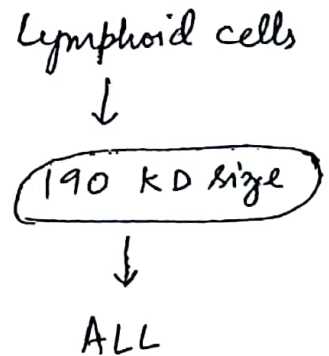 Lymphoid cells
190 KD size
ALL